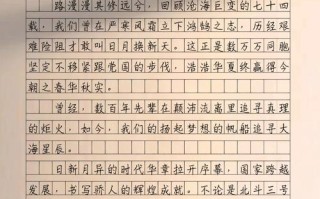 路漫漫其修远兮，回顾沧海巨变的七十四
载，我们曾在严寒风霜立下鸿鹄之志，历经艰
难险阻才敢叫日月换新天。这正是数万万同胞
坚定不移紧跟党国的步伐，浩浩华夏终赢得今
朝之春华秋实。
曾经，数百年先辈在颠沛流离里追寻真理
的炬火，如今，我们的扬起梦想的帆船追寻大
海星辰。
日新月异的时代华章拉开序幕，国家跨越
发展，书写骄人的辉煌成就。不论是北斗三号